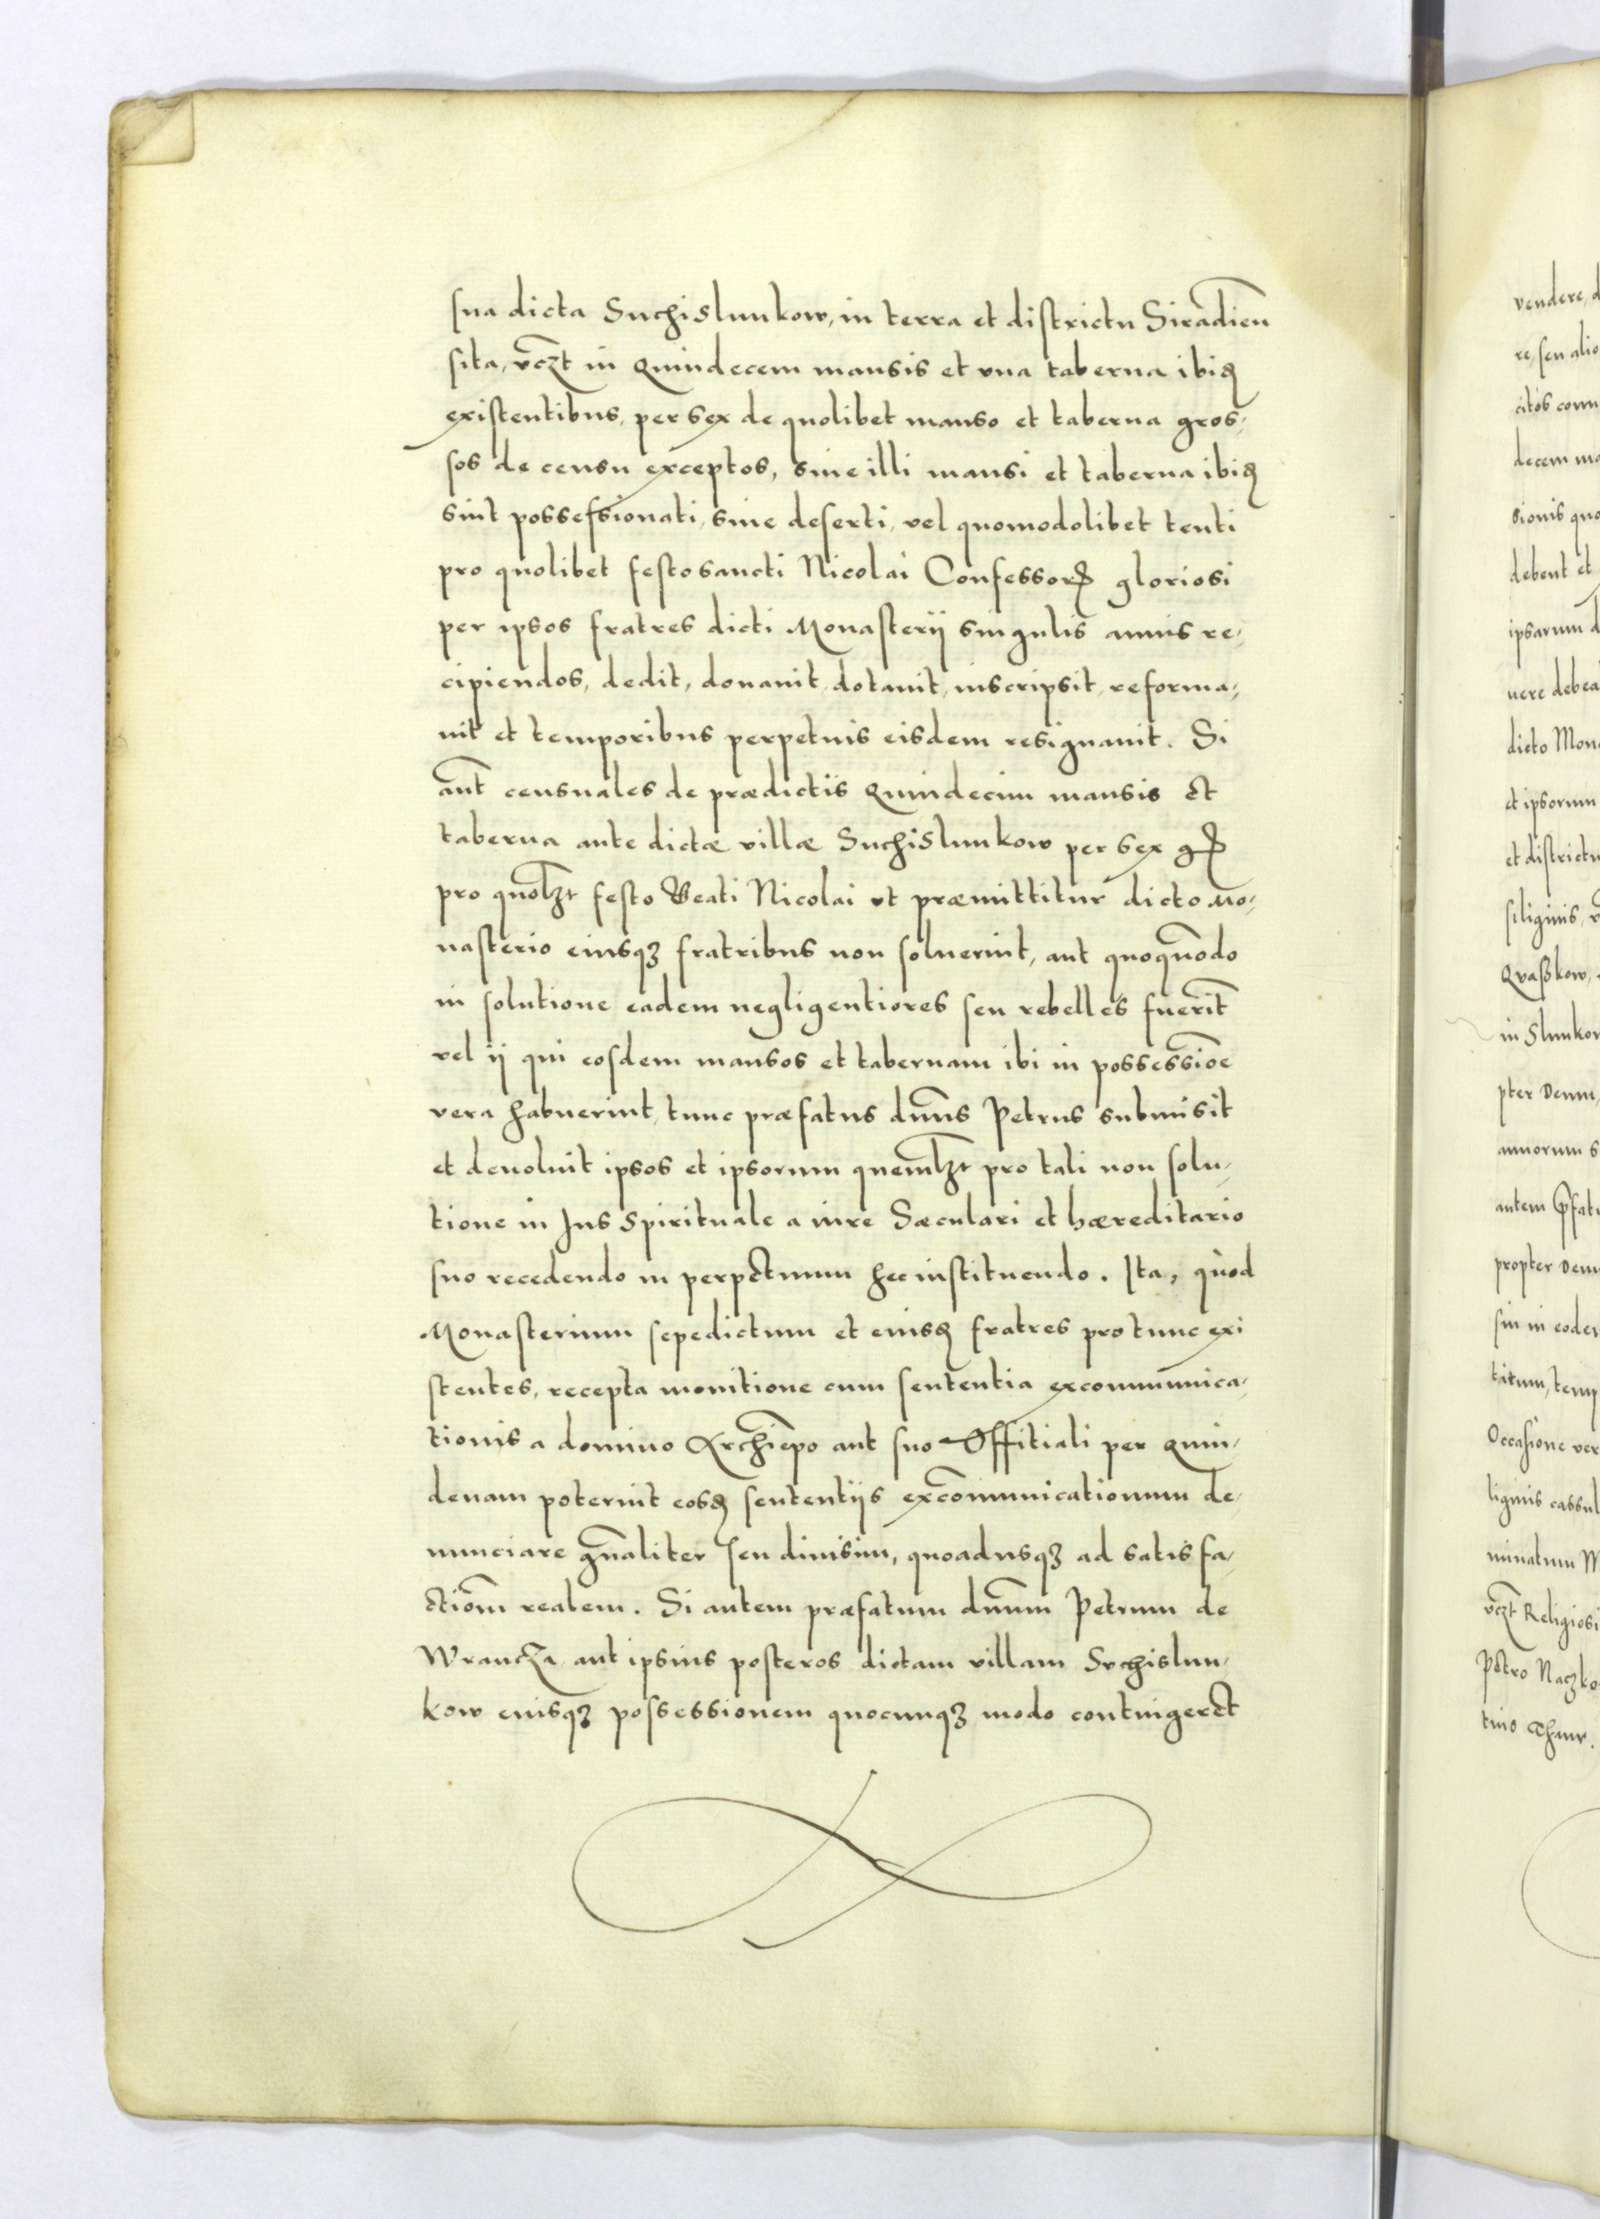 sua dicta Suchislunkow, in terra et districtu Siradien̄
sita, vcz̄t in Quindecem mansis et vna taberna ibiꝫ
existentibus, per sex de quolibet manso et taberna gros,
sos de censu exceptos, siue illi mansi et taberna ibiꝫ
sint possessionati, siue deserti, vel quomodolibet tenti
pro quolibet festo sancti Nicolai Confessorꝭ gloriosi
per ipsos fratres dicti Monasterij singulis annis re,
cipiendos, dedit, donauit, dotauit, inscripsit, reforma,
uit et temporibus perpetuis eisdem resignauit. Si
aūt censuales de prædictis Quindecim mansis et
taberna ante dictæ villæ Suchislunkow per sex gꝭ
pro quolꝫt festo Beati Nicolai vt præmittitur dicto Mo,
nasterio eiusqꝫ fratribus non soluerint, aut quoquōdo
in solutione eadem negligentiores seu rebelles fuerīt
vel ij qui eosdem mansos et tabernam ibi in possessiōe
vera habuerint, tunc præfatus dn̄us Petrus submisit
et deuoluit ipsos et ipsorum quemlꝫt pro tali non solu,
tione in Jus Spirituale a iure Sæculari et hæreditario
suo recedendo in perpetuum hec instituendo. Ita, quòd
Monasterium sepedictum et eiusꝫ fratres pro tunc exi
stentes, recepta monitione cum sententia excommunica,
tionis a domino Archiēpo aut suo Offitiali per Quin,
denam poterint eosꝫ sententijs excōmunicationum de,
nunciare gn̄aliter seu diuisim, quoadusqꝫ ad satis fa,
ctiōm realem. Si autem præfatum dn̄um Petrum de
Wrancza aut ipsius posteros dictam villam Suchislun,
kow eiusqꝫ possessionem quocunqꝫ modo contingeret
vendere,
re, seu alio
decem
sionis
debent et
ipsarum
dicto
et ipsorum
et districtu
siliginis,
in
pter Deum,
annorum
autem
propter
titum,
Occasione
ligiosi